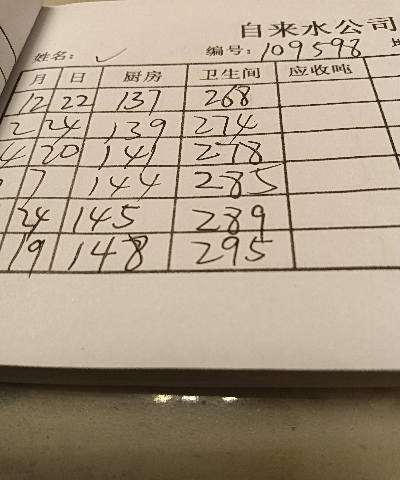 自来水公司
姓名: 编号: 109598
月 日 厨房 卫生间 应收吨
12 22 137 268
2 24 139 274
4 20 141 278
7 144 285
24 145 289
19 148 295